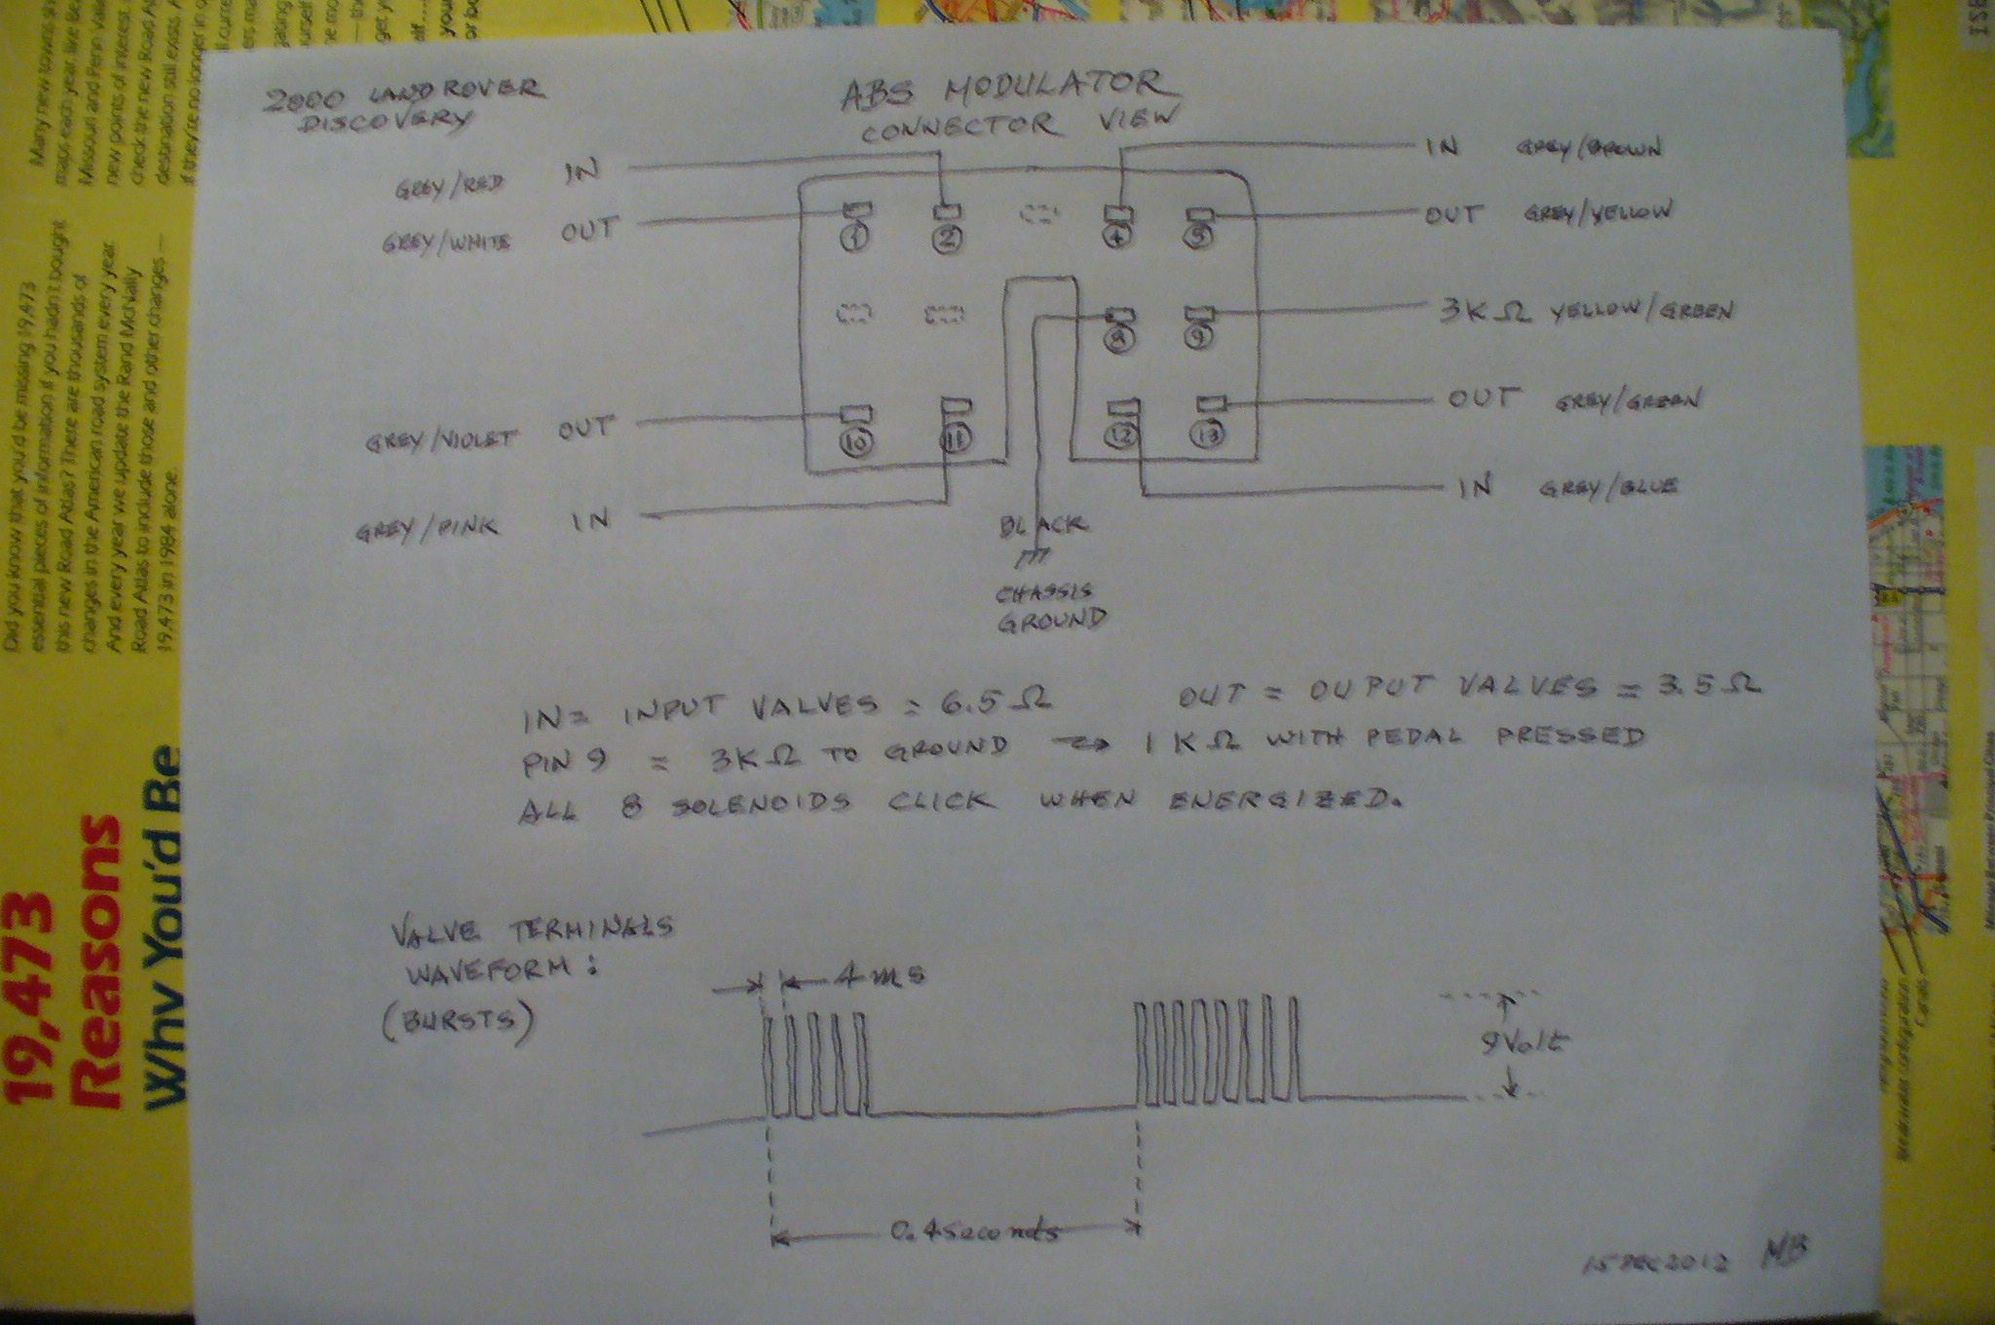 2000 LAND ROVER
DISCOVERY
ABS MODULATOR
CONNECTOR VIEW
GREY/RED IN
GREY/WHITE OUT
IN GREY/BROWN
OUT GREY/YELLOW
1 2 4 5
3KΩ YELLOW/GREEN
8 9
OUT GREY/GREEN
GREY/VIOLET OUT
10 11 12 13
IN GREY/BLUE
GREY/PINK IN
BLACK
CHASSIS
GROUND
IN = INPUT VALVES = 6.5Ω OUT = OUPUT VALVES = 3.5Ω
PIN 9 = 3KΩ TO GROUND → 1KΩ WITH PEDAL PRESSED
ALL 8 SOLENOIDS CLICK WHEN ENERGIZED.
VALVE TERMINALS
WAVEFORM:
(BURSTS)
4ms
9Volt
0.4seconds
15 DEC 2012 MB
Many new towns
maps each year, like Be
Missouri and Penn
new points of interest.
check the new Road A
destination still exists. A
if they're no longer in
Did you know that you'd be missing 19,473
essential pieces of information if you hadn't bought
this new Road Atlas? There are thousands of
changes in the American road system every year.
And every year we update the Rand McNally
Road Atlas to include those and other changes —
19,473 in 1984 alone.
19,473
Reasons
Why You'd Be